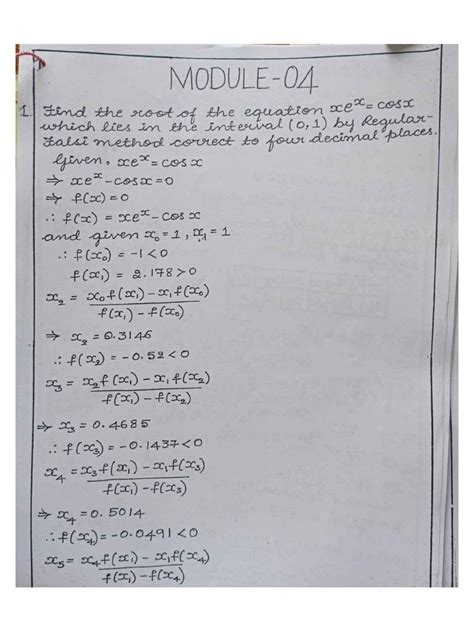 MODULE-04
1. Find the root of the equation xeˣ = cosx
which lies in the interval (0,1) by Regular-
Falsi method correct to four decimal places.
Given, xeˣ = cosx
⇒ xeˣ - cosx = 0
⇒ f(x) = 0
∴ f(x) = xeˣ - cosx
and given x₀ = 1, x₁ = 1
∴ f(x₀) = -1 < 0
f(x₁) = 2.178 > 0
x₂ = x₀f(x₁) - x₁f(x₀)
f(x₁) - f(x₀)
⇒ x₂ = 0.3146
∴ f(x₂) = -0.52 < 0
x₃ = x₂f(x₁) - x₁f(x₂)
f(x₁) - f(x₂)
⇒ x₃ = 0.4685
∴ f(x₃) = -0.1437 < 0
x₄ = x₃f(x₁) - x₁f(x₃)
f(x₁) - f(x₃)
⇒ x₄ = 0.5014
∴ f(x₄) = -0.0491 < 0
x₅ = x₄f(x₁) - x₁f(x₄)
f(x₁) - f(x₄)